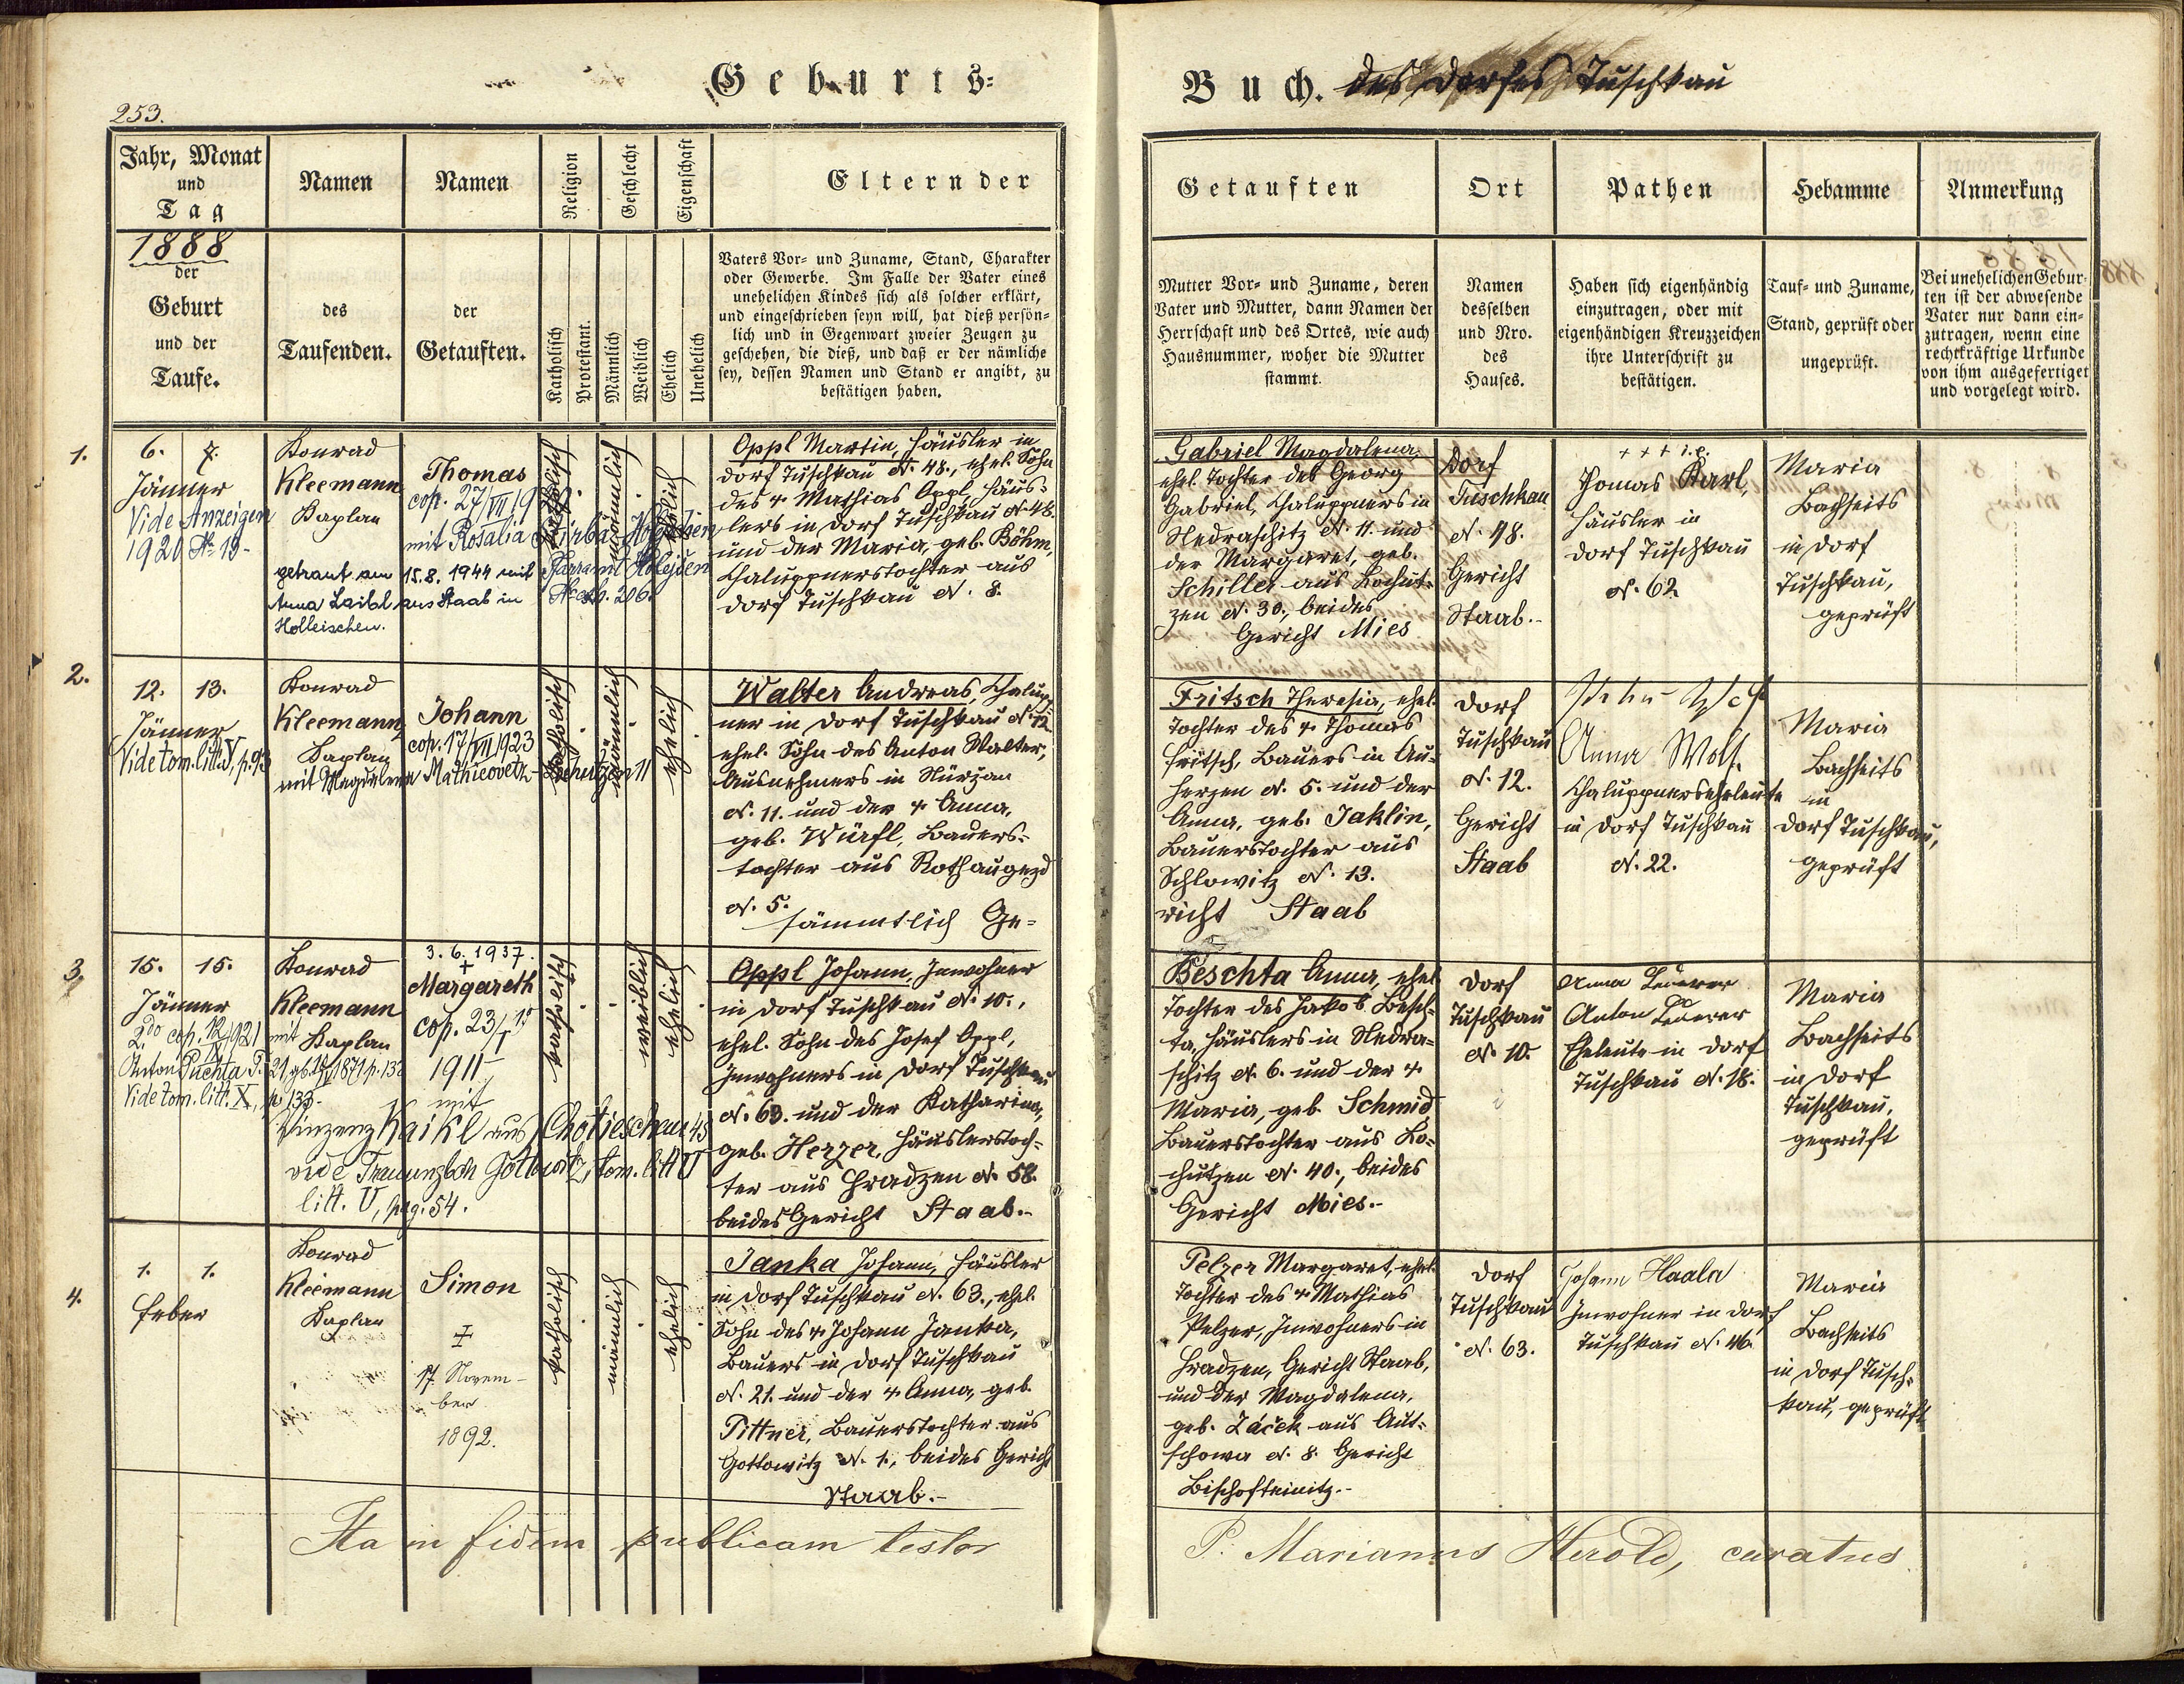 Geburts-
Buch. des Dorfes Tuschkau
253.
Jahr, Monat
und
Tag
1888
der
Geburt
und der
Taufe.
Namen
des
Taufenden.
Namen
der
Getauften.
Religion
Katholisch
Protestant.
Geschlecht
Männlich
Weiblich
Eigenschaft
Ehelich
Unehelich
Eltern der
Vaters Vor- und Zuname, Stand, Charakter
oder Gewerbe. Im Falle der Vater eines
unehelichen Kindes sich als solcher erklärt,
und eingeschrieben seyn will, hat dieß persön-
lich und in Gegenwart zweier Zeugen zu
geschehen, die dieß, und daß er der nämliche
sey, dessen Namen und Stand er angibt, zu
bestätigen haben.
Getauften
Mutter Vor- und Zuname, deren
Vater und Mutter, dann Namen der
Herrschaft und des Ortes, wie auch
Hausnummer, woher die Mutter
stammt.
Ort
Namen
desselben
und Nro.
des
Hauses.
Pathen
Haben sich eigenhändig
einzutragen, oder mit
eigenhändigen Kreuzzeichen
ihre Unterschrift zu
bestätigen.
Hebamme
Tauf- und Zuname,
Stand, geprüft oder
ungeprüft.
Anmerkung
Bei unehelichen Gebur-
ten ist der abwesende
Vater nur dann ein-
zutragen, wenn eine
rechtkräftige Urkunde
von ihm ausgefertiget
und vorgelegt wird.
1.
6. 7.
Jänner
Vide Anzeigen
1920 No 19-
Konrad
Kleemann
Kaplan
Thomas
cop. 27/VII 19
mit Rosalia
getraut am 15.8.1944 mit Pfarramt Holejšen
Anna Laibl aus Staab in
Holleischen.
katholisch
männlich
ehelich
Oppl Martin, Häusler in
Dorf Tuschkau N. 48., ehel. Sohn
des + Mathias Oppl, Häus-
lers in Dorf Tuschkau N. 48.
und der Maria, geb. Böhm,
Chaluppnerstochter aus
Dorf Tuschkau N. 8.
Gabriel Magdalena,
ehel. Tochter des Georg
Gabriel, Chaluppners in
Nedraschitz N. 11. und
der Margaret, geb.
Schiller aus Lochut-
zen N. 30., beides
Gericht Mies
Dorf
Tuschkau
N. 48.
Gericht
Staab.-
+++ i.e.
Thomas Karl,
Häusler in
Dorf Tuschkau
N. 62
Maria
Bachheits
in Dorf
Tuschkau,
geprüft
2.
12. 13.
Jänner
Vide tom. litt. V, p. 93
Konrad
Kleemann,
Kaplan
Johann
cop. 17/VII 1923
mit Magdalena Mathieovetz
katholisch
männlich
ehelich
Walter Andreas, Chalupp-
ner in Dorf Tuschkau N. 12
ehel. Sohn des Anton Walter,
Ausnehmers in Nürzan
N. 11. und der + Anna,
geb. Würfl, Bauers-
tochter aus Rothaugezd
N. 5.
sämmtlich Ge-
Fritsch Theresia, ehel.
Tochter des + Thomas
Fritsch, Bauers in Au-
herzen N. 5. und der
Anna, geb. Jaklin,
Bauerstochter aus
Schlowitz N. 13.
richt Staab
Dorf
Tuschkau
N. 12.
Gericht
Staab
Anna Wolf.
Chaluppnerseheleute
in Dorf Tuschkau
N. 22.
Maria
Bachheits
in
Dorf Tuschkau,
geprüft
3.
15. 15.
Jänner
2do cop. 12/IV 921 mit
Anton Puchta
Vide tom. litt. X, p. 133-
Konrad
Kleemann
Kaplan
3. 6. 1937.
+
Margareth
cop. 23/I
1911
mit
Vinzenz Kaikl aus Chotieschau 45
vide Trauungsbch Gottowitz, tom. litt V
litt. V, pag. 54.
katholisch
weiblich
ehelich
Oppl Johann, Inwohner
in Dorf Tuschkau N. 10.,
ehel. Sohn des Josef Oppl,
Inwohners in Dorf Tuschkau
N. 63. und der Katharina,
geb. Herzer, Häuslerstoch-
ter aus Hradzen N. 58.
beides Gericht Staab.-
Beschta Anna, ehel.
Tochter des Jakob Besch-
ta, Häuslers in Nedra-
schitz N. 6. und der +
Maria, geb. Schmid,
Bauerstochter aus Lo-
chutzen N. 40., beides
Gericht Mies.-
Dorf
Tuschkau
N. 10.
Anna Lederer
Anton Lederer
Eheleute in Dorf
Tuschkau N. 18.
Maria
Bachheits
in Dorf
Tuschkau,
geprüft
4.
1. 1.
Feber
Konrad
Kleemann
Kaplan
Simon
‡
17 Novem-
ber
1892.
katholisch
männlich
ehelich
Janka Johann, Häusler
in Dorf Tuschkau N. 63., ehel.
Sohn des + Johann Janka,
Bauers in Dorf Tuschkau
N. 21. und der + Anna, geb.
Pittner, Bauerstochter aus
Gottowitz N. 1., beides Gericht
Staab.-
Pelzer Margaret, ehel.
Tochter des + Mathias
Pelzer, Inwohners in
Hradzen, Gericht Staab,
und der Magdalena,
geb. Žáček aus Aut-
schowa N. 8. Gericht
Bischofteinitz.-
Dorf
Tuschkau
N. 63.
Johann Haala
Inwohner in Dorf
Tuschkau N. 46.
Maria
Bachheits
in Dorf Tusch-
kau, geprüft
Ita in fidem publicam testor
P. Marianus Herold, curatus